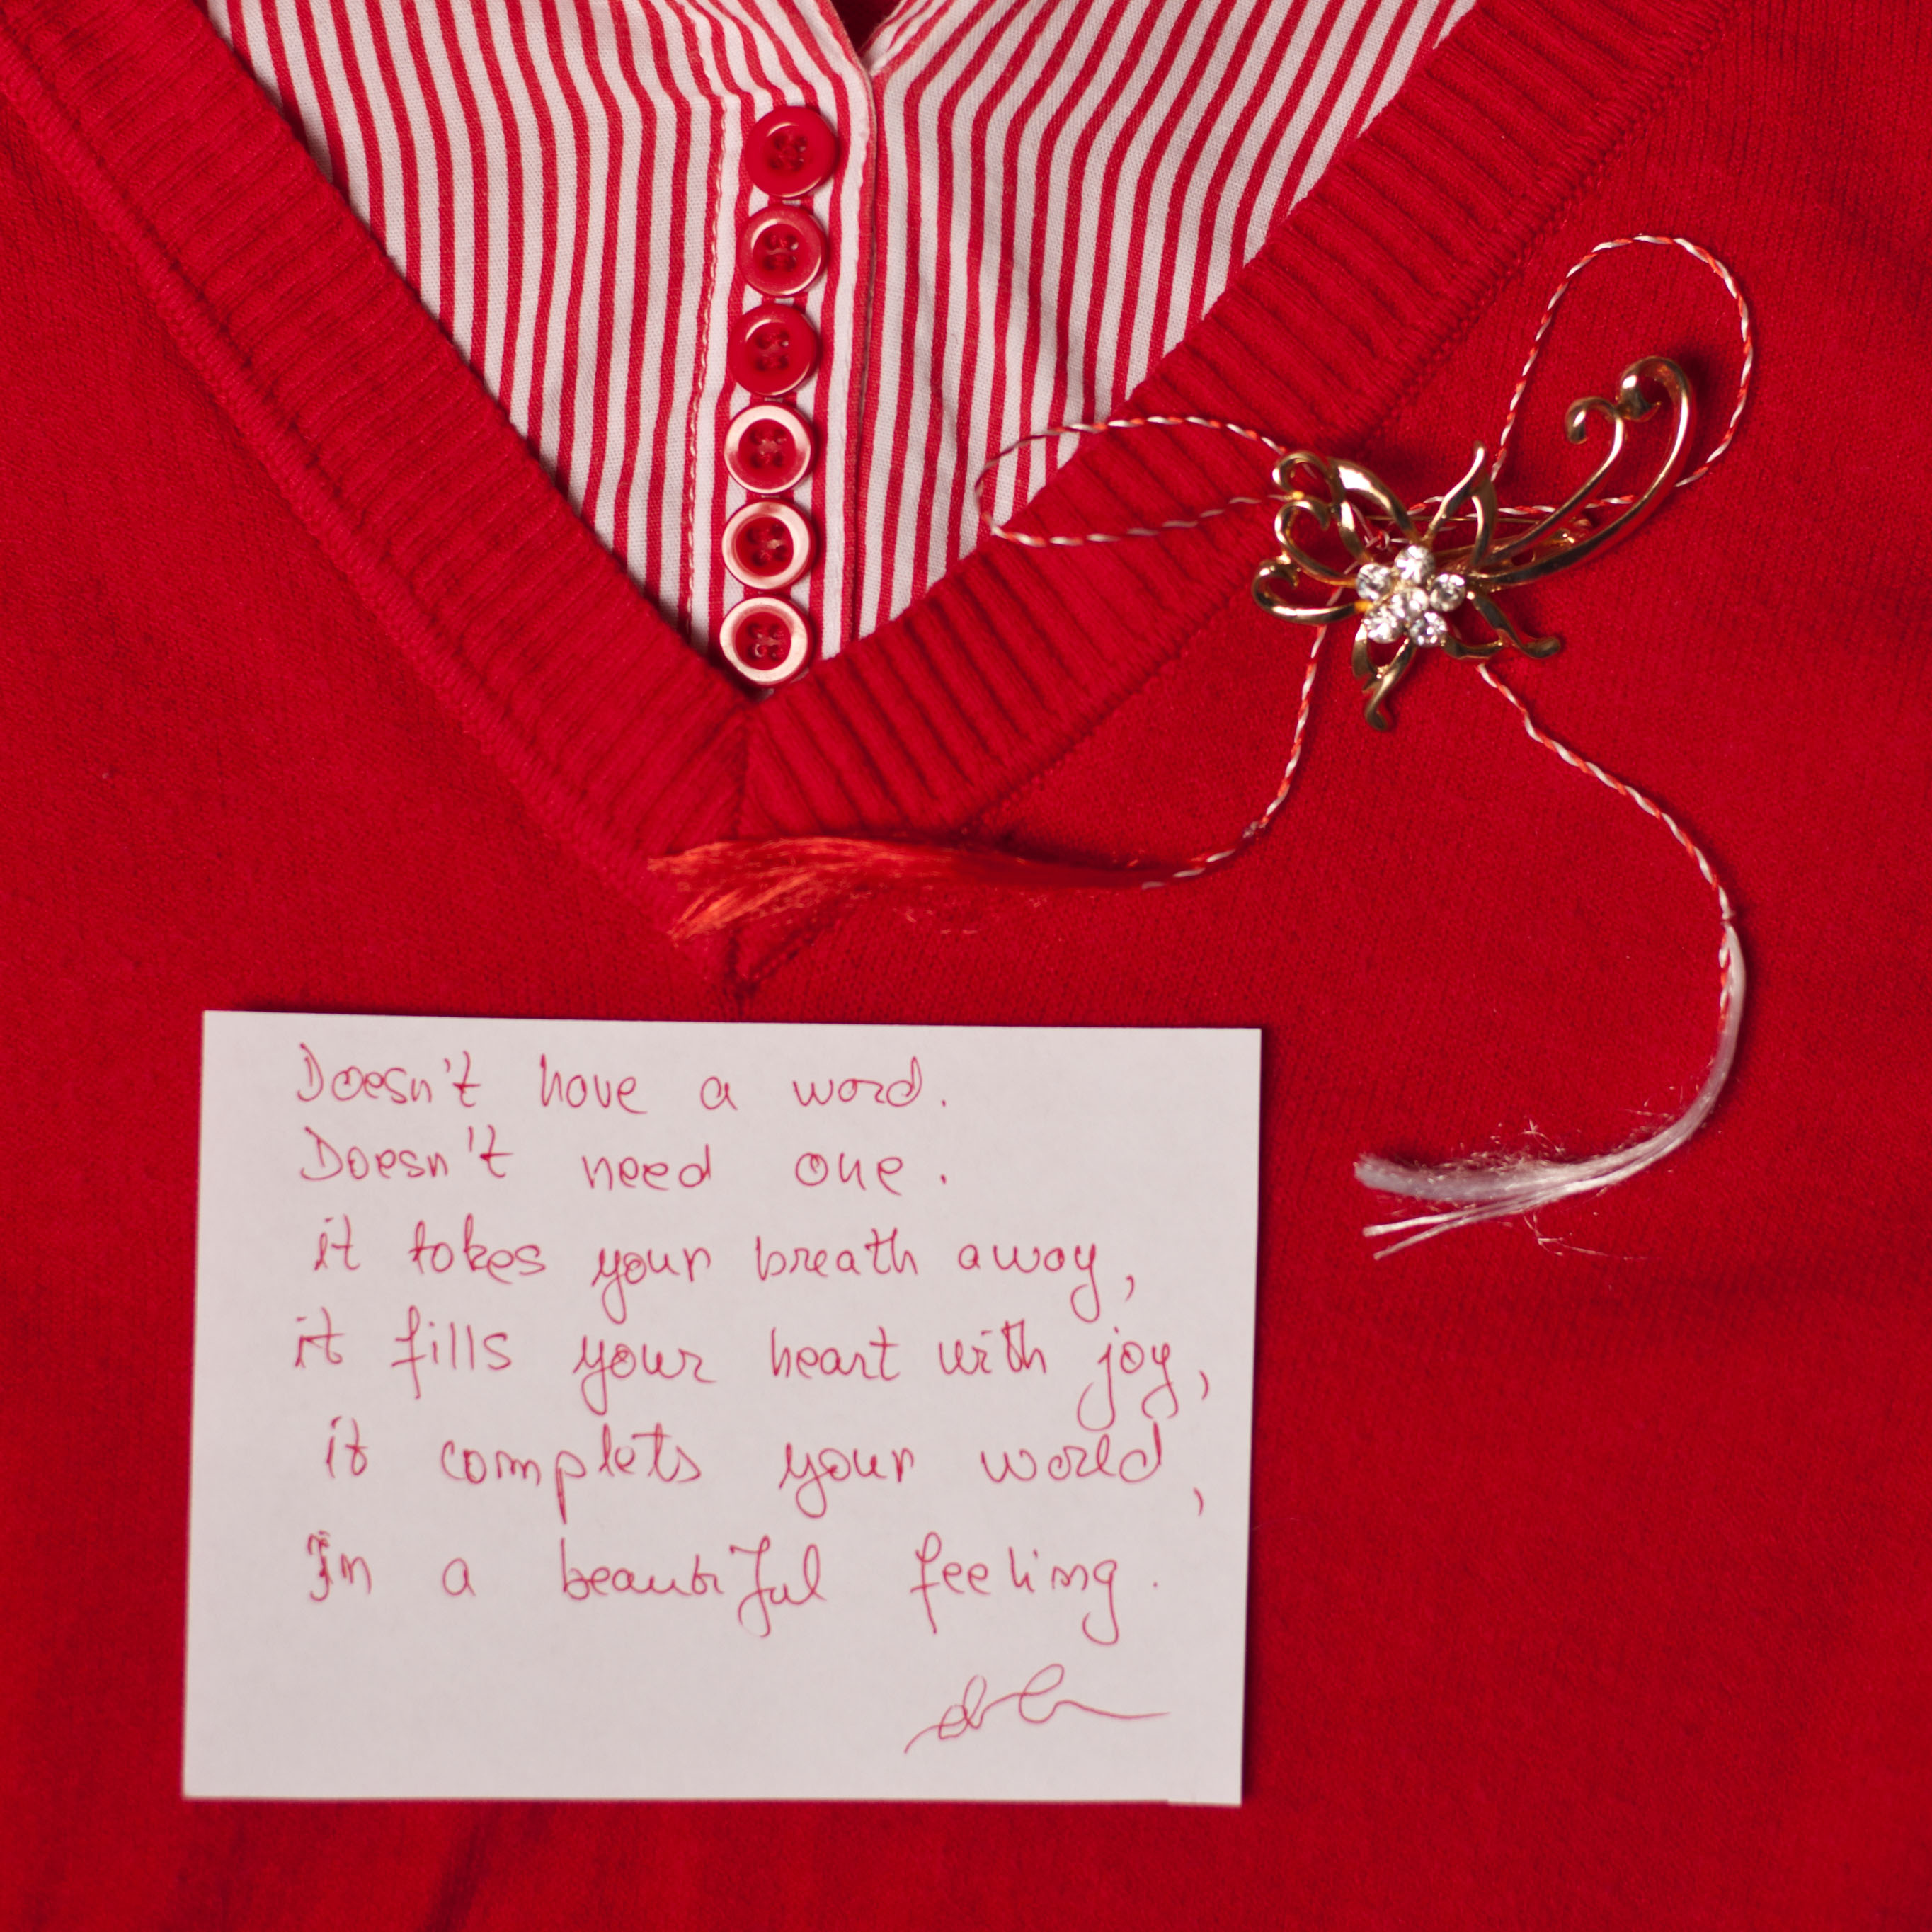 Doesn't have a word.
Doesn't need one.
it takes your breath away,
it fills your heart with joy,
it complets your world,
In a beautiful feeling.